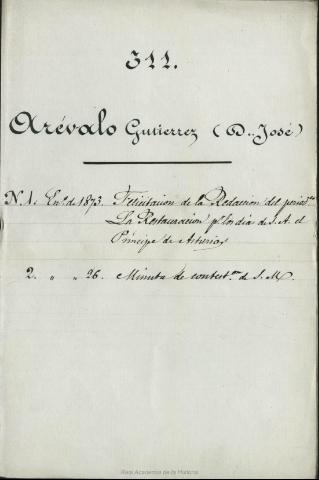 311.
Arévalo Gutierrez (D. José)
N. 1. En.º de 1873. Felicitacion de la Redaccion del period.co
La Restauracion p.r los dia de S. A. el
Principe de Asturias
2. " " 26. Minuta de contest.on de S. M.
Real Academia de la Historia